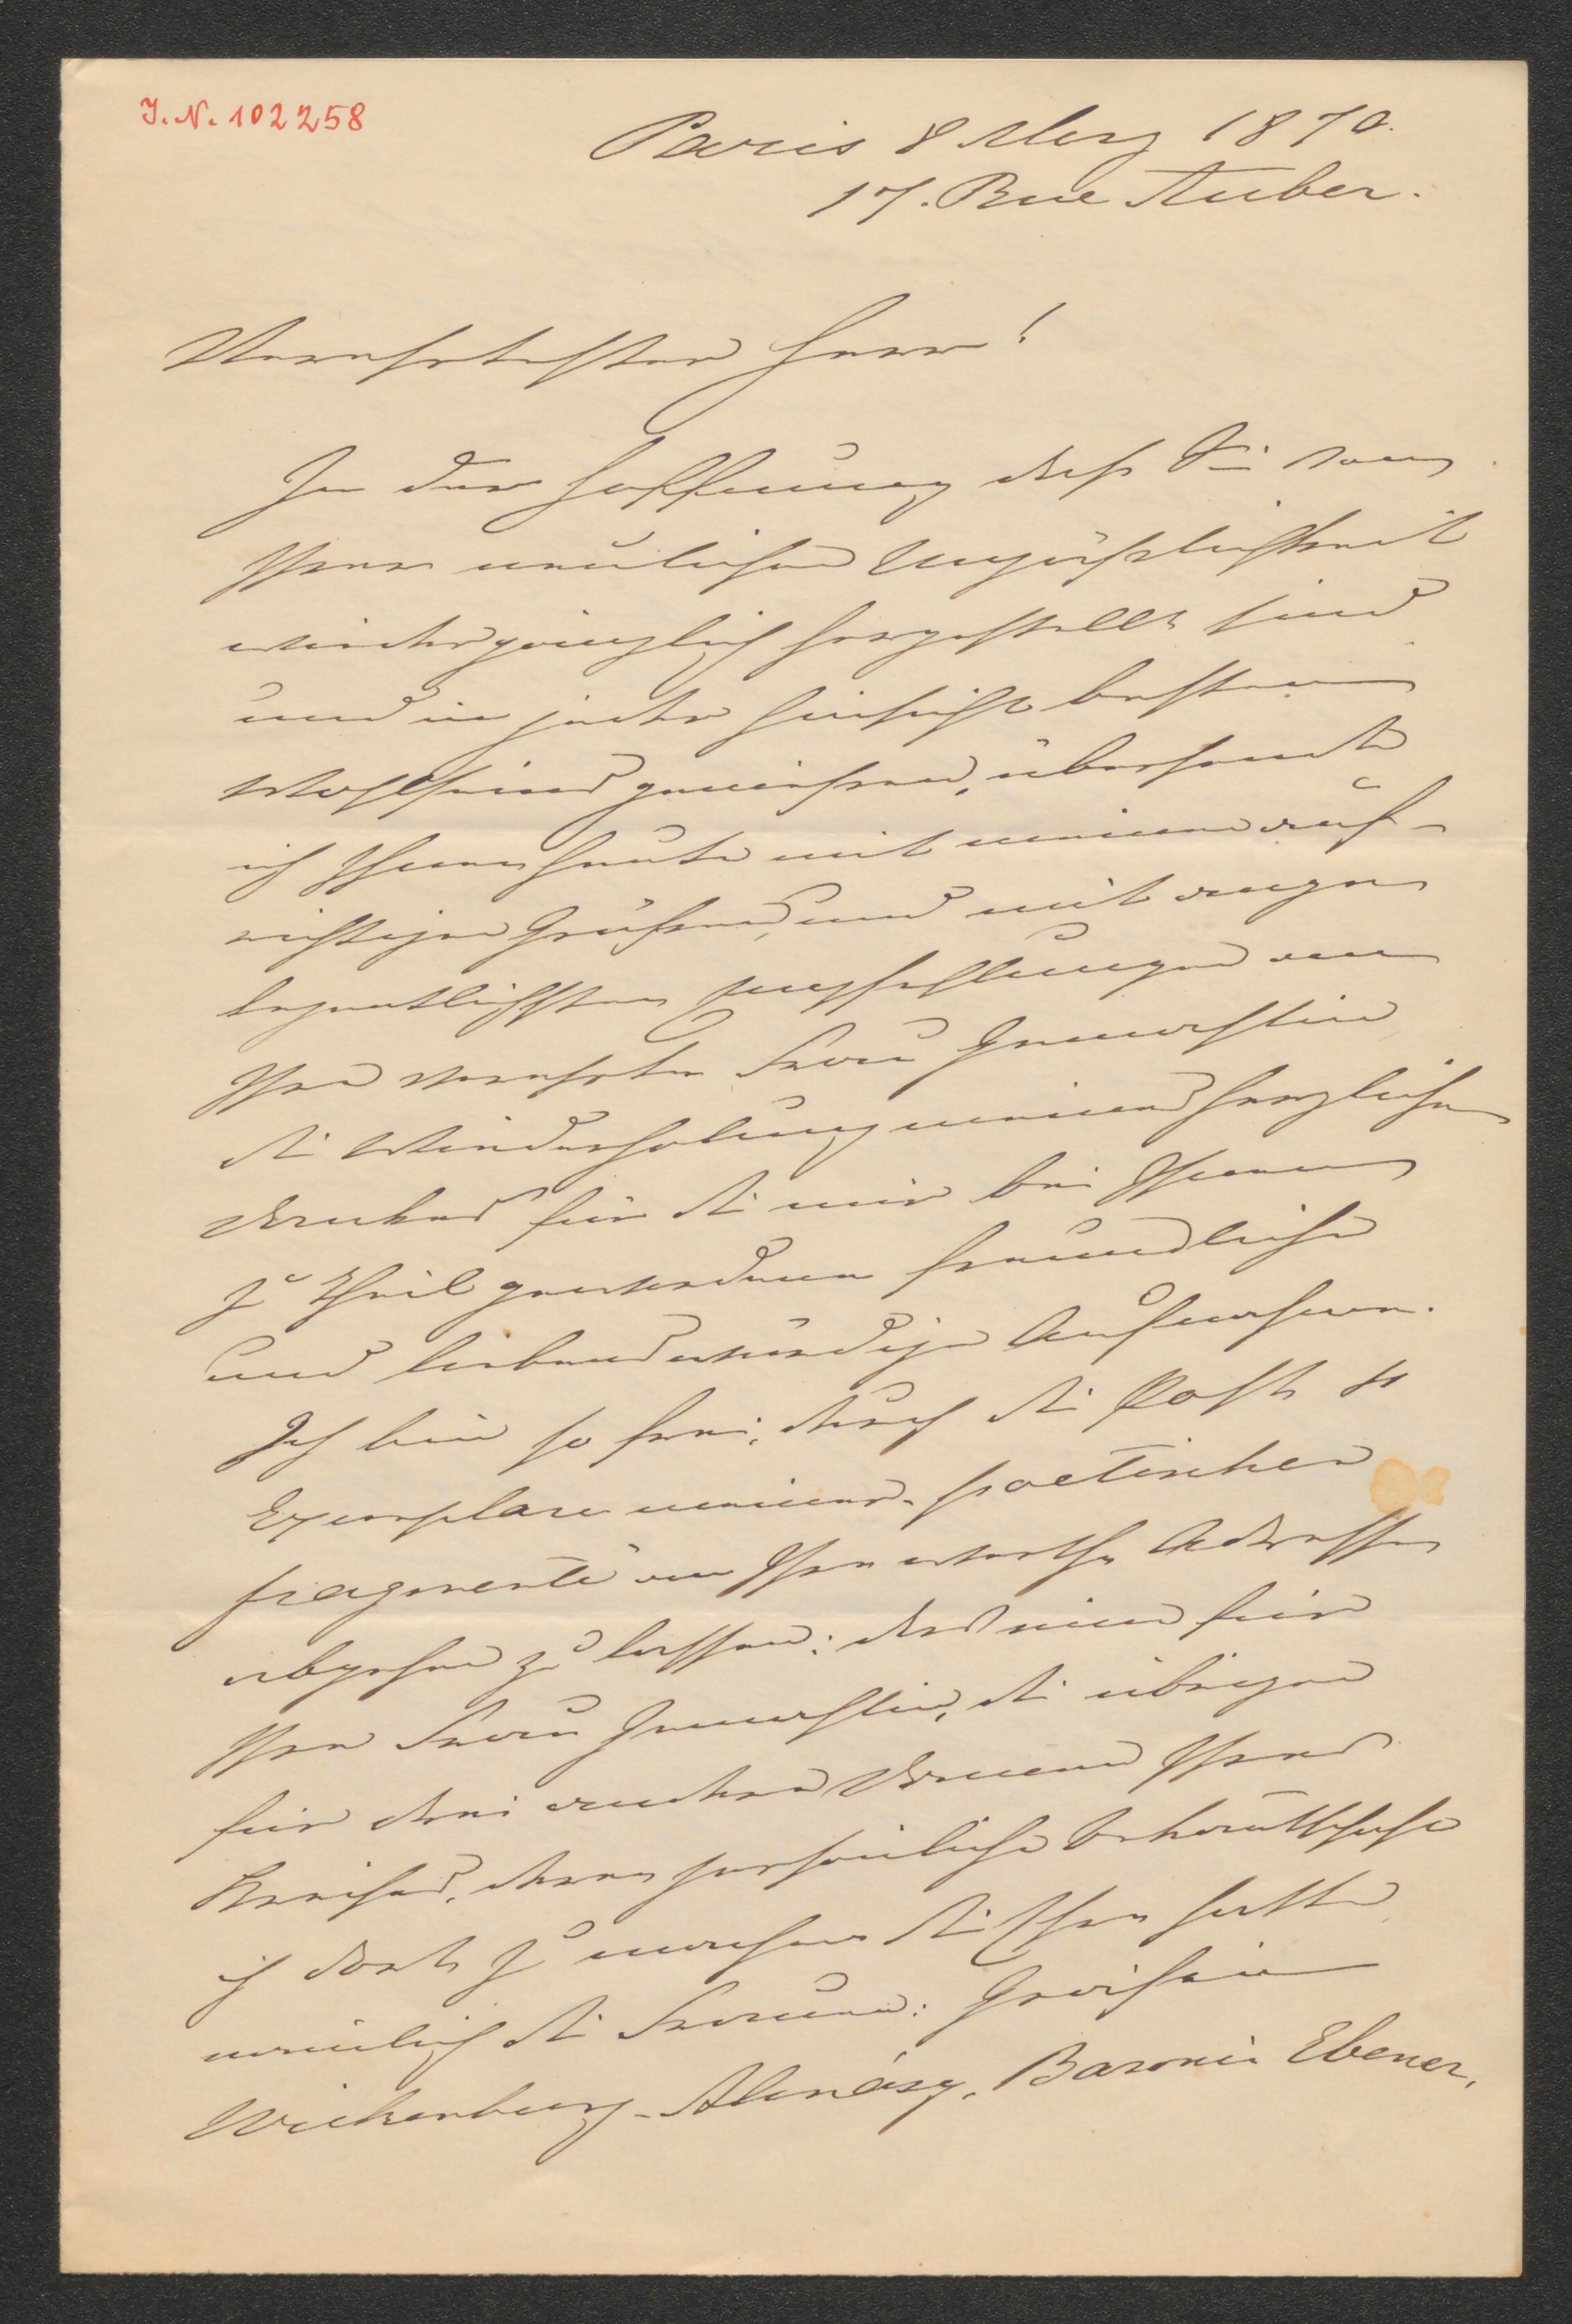 J. N. 102258
Paris 8 Merz 1870.
17. Rue Auber.
Verehrtester Herr!
In der Hoffnung daß Sie von
Ihrer neulichen Unpäßlichkeit
wieder gänzlich hergestellt sind
und in jeder Hinsicht besten
Wohlseins genießen, übersende
ich Ihnen heute mit meinen auf-
richtigen Grüßen, und mit ange-
legentlichsten Empfehlungen an
Ihre verehrte Frau Gemahlin
die Wiederholung meines herzlichen
Dankes für die mir bei Ihnen
zu Theil gewordene freundliche
und liebenswürdige Aufnahme.
Ich bin so frei, durch die Post 4
Exemplare meiner poetischen
fragmente an Ihre werthe Adresse
abgehen zu lassen: das eine für
Ihre Frau Gemahlin, die übrigen
für drei andere Damen Ihres
Kreises, deren persönliche Bekanntschaft
ich dort zu machen die Ehre hatte
nämlich die Frauen: Gräfin
Wickenburg-Almásy, Baronin Ebener,